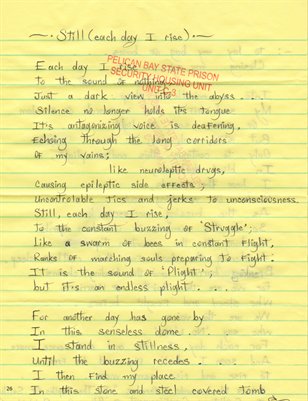 ~. Still (each day I rise) .~
Each day I rise
to the sound of nothing,
Just a dark view into the abyss . . .
Silence no longer holds its tongue
It's antagonizing voice is deafening,
Echoing through the long corridors
Of my vains;
like neuroleptic drugs,
Causing epileptic side affects,
Uncontrolable tics and jerks to unconsciousness.
Still, each day I rise,
to the constant buzzing of 'Struggle',
Like a swarm of bees in constant flight,
Ranks of marching souls preparing to fight.
It is the sound of 'Plight',
but it's an endless plight . . .
For another day has gone by
In this senseless dome . . .
I stand in stillness,
Until the buzzing recedes . .
I then find my place
In this stone and steel covered tomb
PELICAN BAY STATE PRISON
SECURITY HOUSING UNIT
UNIT C-3
26